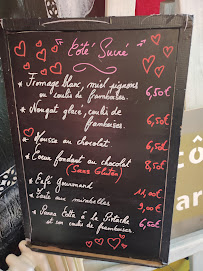 Côté Sucré
* Fromage blanc, miel pignons
ou coulis de framboises. 6,50€
* Nougat glacé, coulis de
framboises. 6,50€
* Mousse au chocolat 6,50€
* Coeur fondant au chocolat 8,50€
(Sans Gluten)
* Café Gourmand 11,00€
* Tarte aux mirabelles 9,00€
* Panna Cotta à la Pistache
et son coulis de framboises. 6,50€